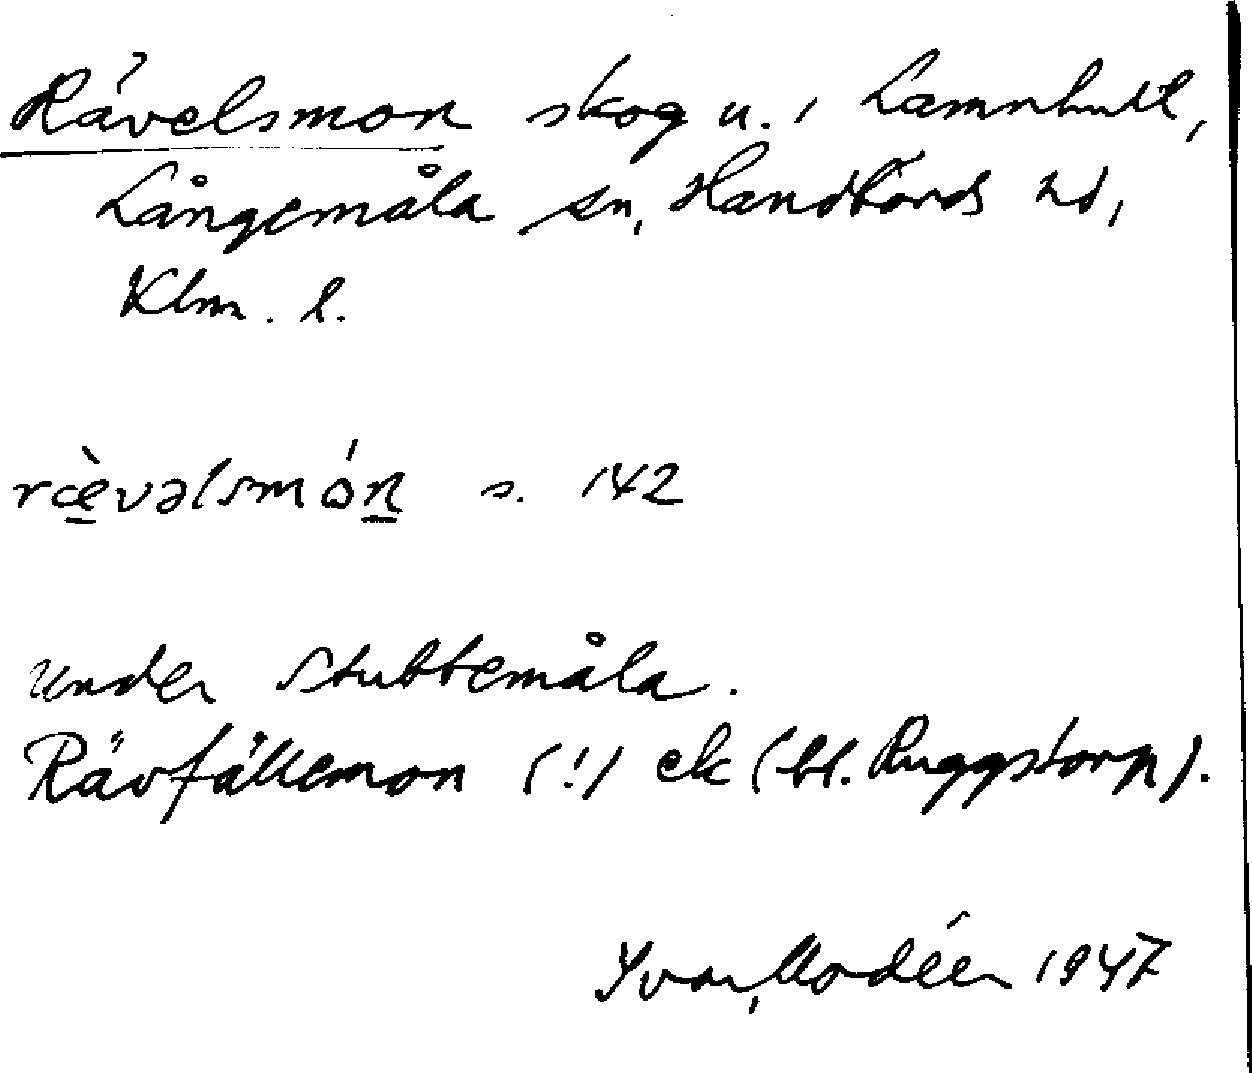 Rävelsmon skog u. i Lamnhult,
Långemåla sn, Handbörds hd,
Klm. l.
ræ̀vəlsmón s. 142
under Stubbemåla.
Rävfällemon (!) ek (bl. Ruggstorp).
Yvar Modéer 1947